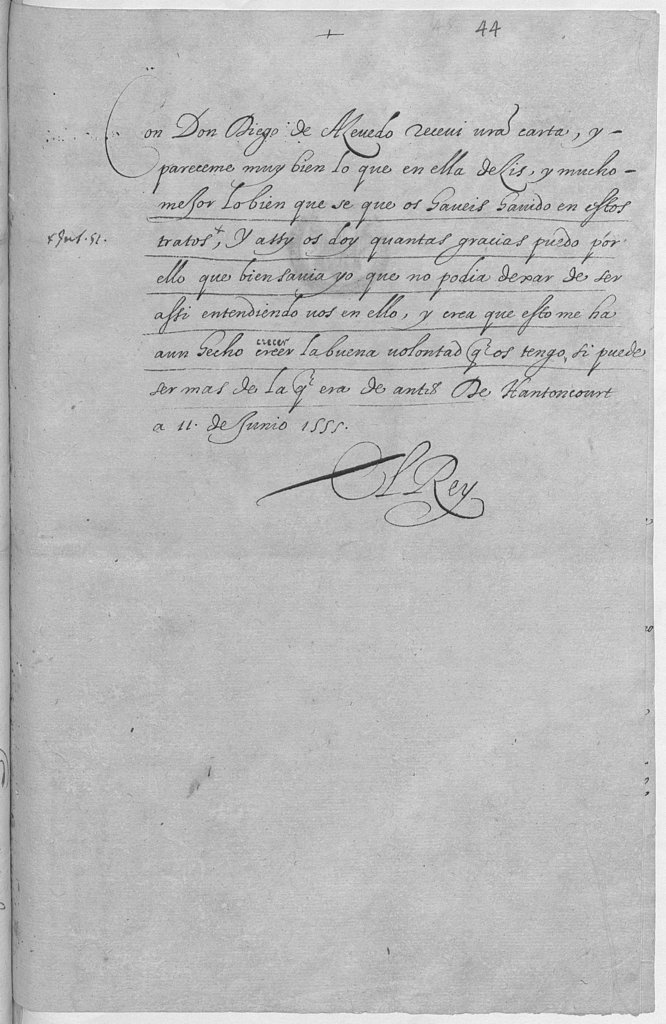 44
Con Don Diego de Azevedo recevi vrã carta, y -
pareceme muy bien lo que en ella deZis, y mucho -
meJor lo bien que se que os haveis havido en estos
tratos, Y assy os doy quantas gracias puedo por
ello que bien savia yo que no podia dexar de ser
assi entendiendo vos en ello, y crea que esto me ha
aun hecho creer la buena volontad q̃ os tengo, si puede
crecer
ser mas de la q̃ era de antes De Hantoncourt
a 11. de Junio 1555.
El Rey